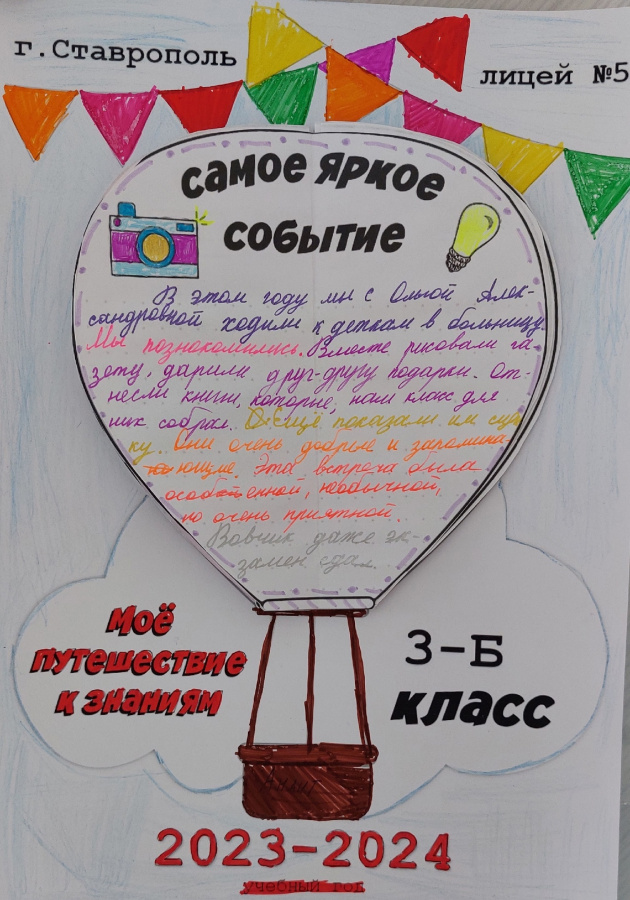 г.Ставрополь
лицей №5
самое яркое
событие
В этом году мы с Ольгой Алек-
сандровной ходили к деткам в больницу.
Мы познакомились. Вместе рисовали га-
зету, дарили друг-другу подарки. От-
несли книги, которые, наш класс для
них собрал. Ой ещё показали им сцен-
ку. Они очень добрые и запомина-
ющие. Эта встреча была
особенной, необычной,
но очень приятной.
Вовчик даже эк-
замен сдал.
Моё
путешествие
к знаниям
3-Б
класс
2023-2024
учебный год